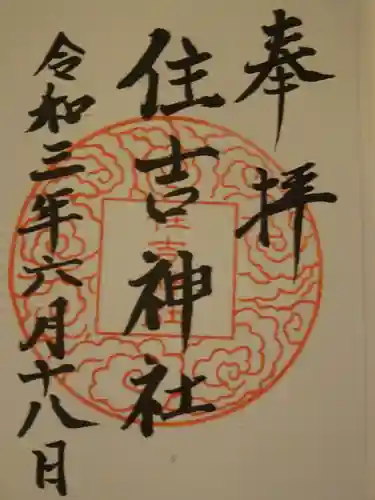 奉拝
住吉神社
令和三年六月十八日